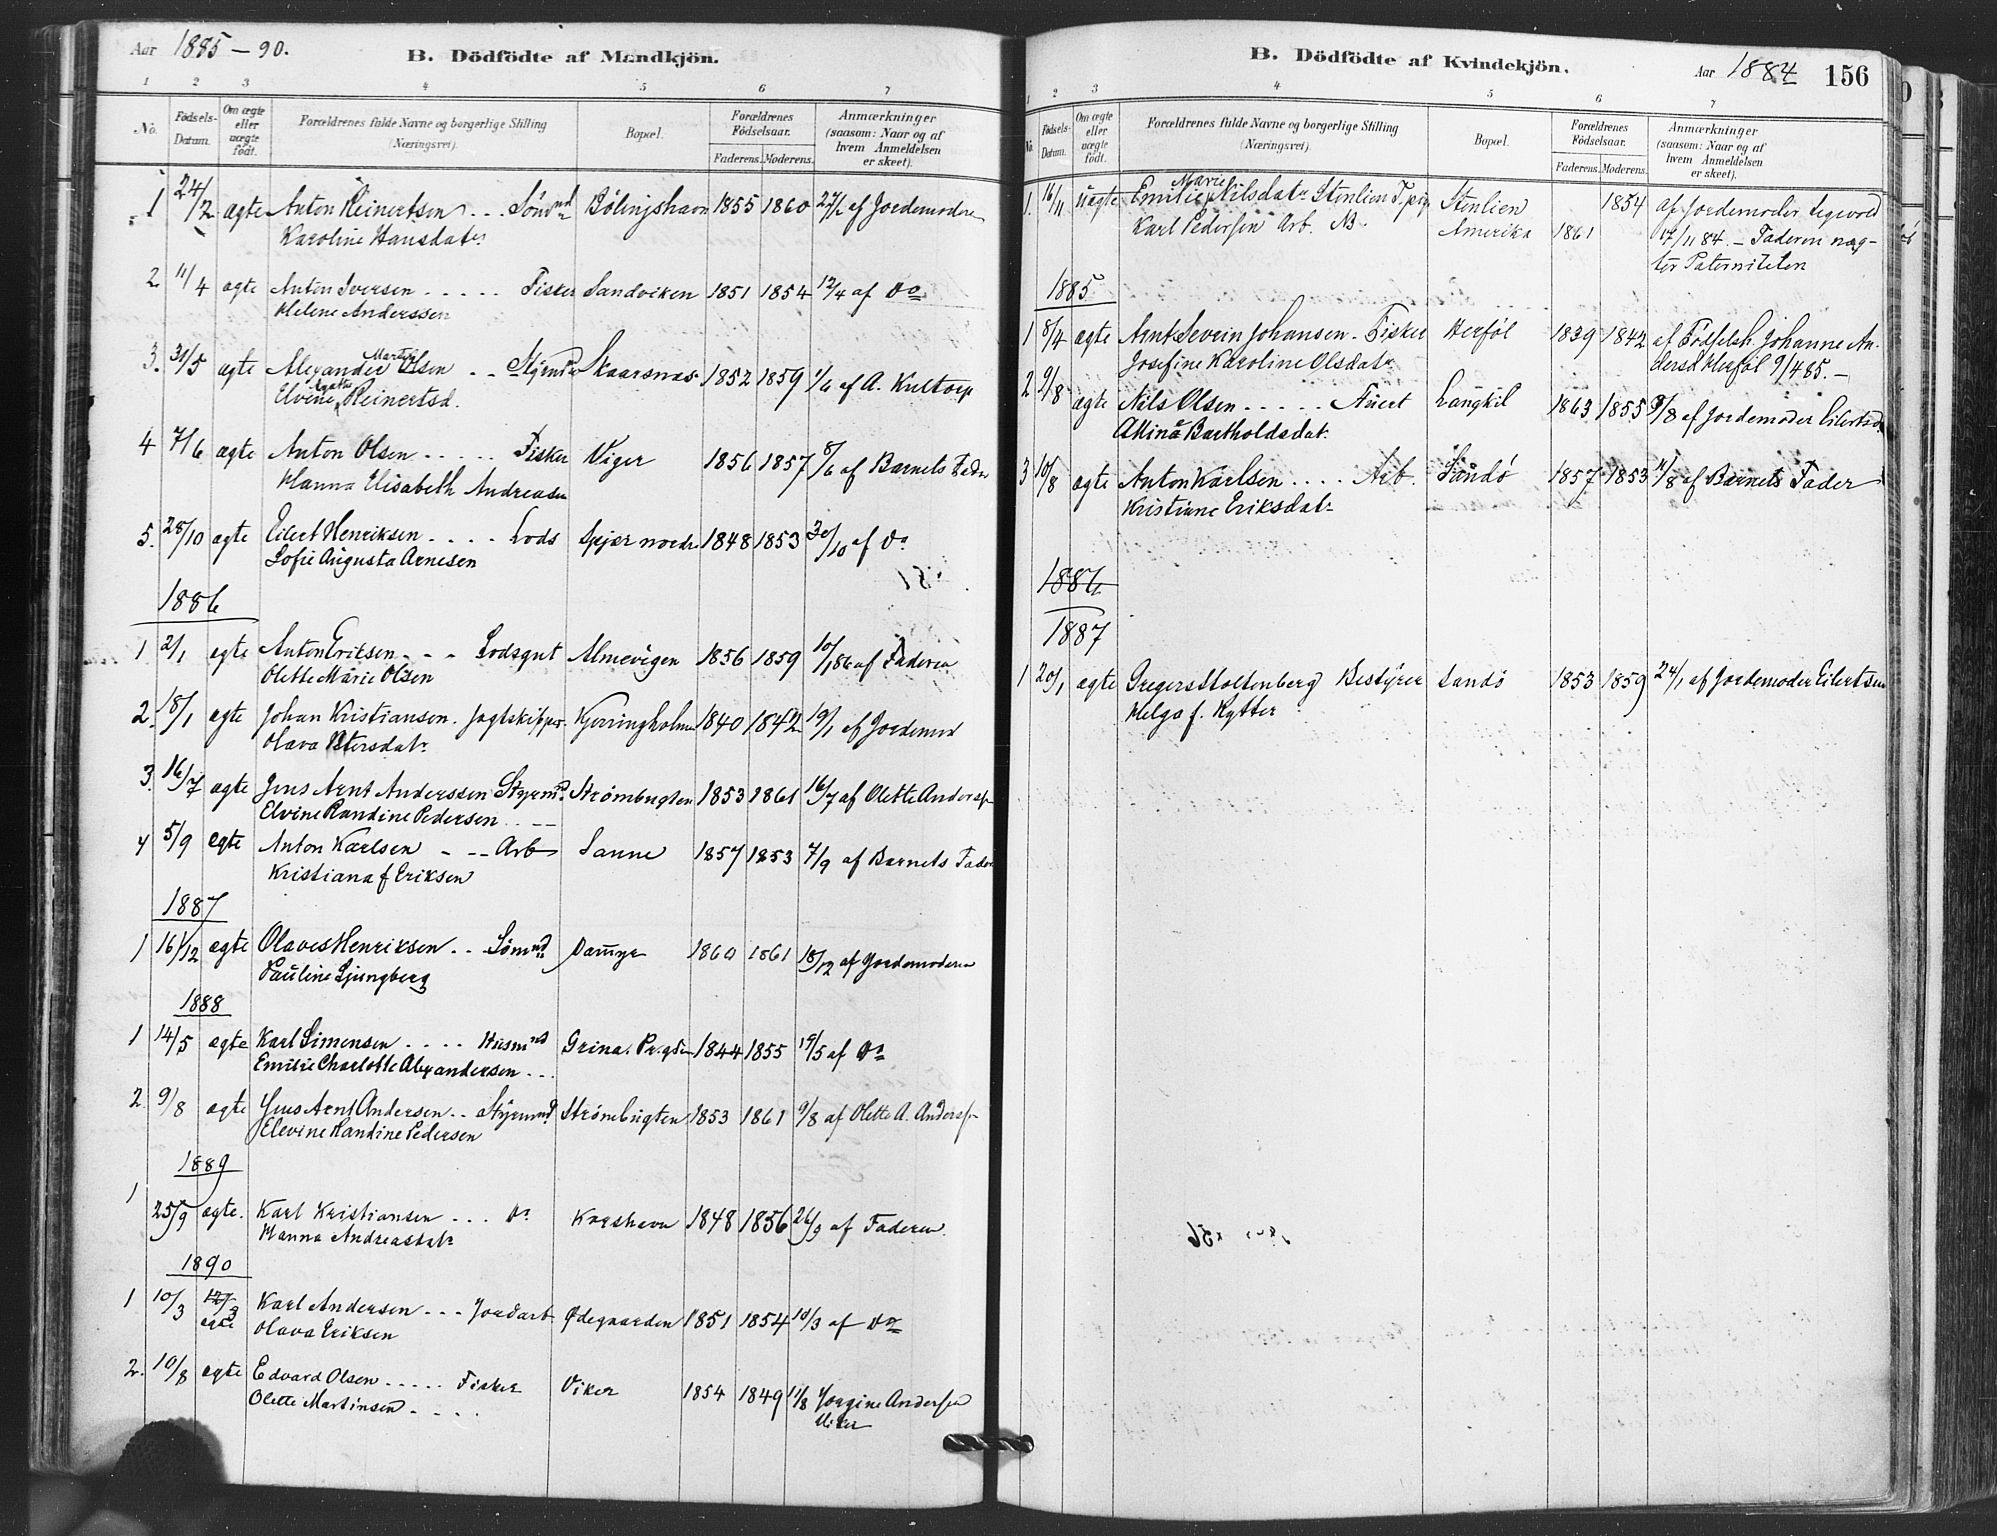 Aar 1885-90.
B. Dödfödte af Mandkjön.
1 2 3 4 5 6 7
No. Födsels-Datum. Om ægte eller uægte født. Forældrenes fulde Navne og borgerlige Stilling (Næringsvei). Bopæl. Forældrenes Födselsaar. Faderens. Moderens. Anmærkninger (saasom: Naar og af hvem Anmeldelsen er skeet).
1 24/2 ægte Anton Reinertsen .. Sømnd Bölingshavn 1855 1860 27/2 af Jordemoderen
Karoline Hansdatr
2 11/4 ægte Anton Iversen ..... Fisker Sandviken 1851 1854 12/4 af Do
Helene Anderssen
3. 31/5 ægte Alexander Martin Olsen .. Styrmd Skaarsnas 1852 1859 1/6 af A. Kultorp
Elvine Agathe Reinertsd.
4 7/6 ægte Anton Olsen ..... Fisker Viger 1856 1857 8/6 af Barnets Fader
Hanna Elisabeth Andreasen
5. 28/10 ægte Eilert Henriksen .... Lods Spjær nordre 1848 1853 30/10 af Do
Sofie Augusta Arnesen
1886
1 2/1 ægte Anton Eriksen - - - Lodsgut Almevigen 1856 1859 10/1 86 af Faderen
Olette Marie Olsen
2. 18/1 ægte Johan Kristiansen. Jagtskipper. Kjerringholmen 1840 1842 19/1 af Jordemod
Olava Petersdatr
3. 16/7 ægte Jens Arnt Anderssen Styrmd. Strømbugten 1853 1861 16/7 af Olette Anders
Elvine Randine Pedersen
4 5/9 ægte Anton Karlsen - -- Arb Sanne 1857 1853 7/9 af Barnets Fader
Kristiana f Eriksen
1887
1 16/12 ægte Olaves Henriksen .. Sømnd Damyr 1860 1861 18/12 af Jordemoderen
Pauline Ljungberg
1888
1 14/5 ægte Karl Simensen .... Husmnd Grina. Pr.gden 1844 1855 19/5 af Do
Emilie Charlotte Alexandersen ...
2. 9/8 ægte Jens Arnt Andersen .. Styrmnd Strömbugten 1853 1861 9/8 af Olette A. Anders
Elevine Randine Pedersen
1889
1 25/9 ægte. Karl Kristiansen ... Do Korshavn 1848 1856 26/9 af Faderen.
Hanna Andreasdatr
1890
1 10/3 12/3 ægte Karl Andersen ... Jordarb Ødegaarden 1851 1854 10/3 af Do
Olava Eriksen
2. 10/8 ægte Edvard Olsen ..... Fisker Viker 1854 1849 11/8 Jorgine Andersen
Olette Martinsen - . . . Viker
B. Dödfödte af Kvindekjön.
Aar 1884 156
1 2 3 4 5 6 7
No. Födsels-Datum. Om ægte eller uægte födt. Forældrenes fulde Navne og borgerlige Stilling (Næringsvei). Bopæl. Forældrenes Födselsaar. Faderens. Moderens. Anmærkninger (saasom: Naar og af hvem Anmeldelsen er skeet).
1. 16/11 uægte Emilie Marie Nilsdatr Stenlien T.pige Stenlien 1854 af Jordemoder
Karl Pedersen Arb. Amerika 1861 17/11 84. - Faderen næg-
ter Paterniteten
1885
1 8/4 ægte Arnt Severin Johansen. Fisker Herføl 1839 1842 af Fødselsh. Johanne An-
Josefine Karoline Olsdatr dersd Herføl 9/4 85. -
2 9/8 ægte Nils Olsen ..... Langkil 1863 1855 9/8 af Jordemoder Eilertsen
Bartholdsdatr
3 10/8 ægte Anton Karlsen .... Arb. Sandö 1857 1853 11/8 af Barnets Fader
Kristiane Eriksdatr
1886
1887
1 20/1 ægte Gregers Stoltenberg Bestyrer Sandö 1853 1859 24/1 af Jordemoder Eilertsen
Helga f. Rytter